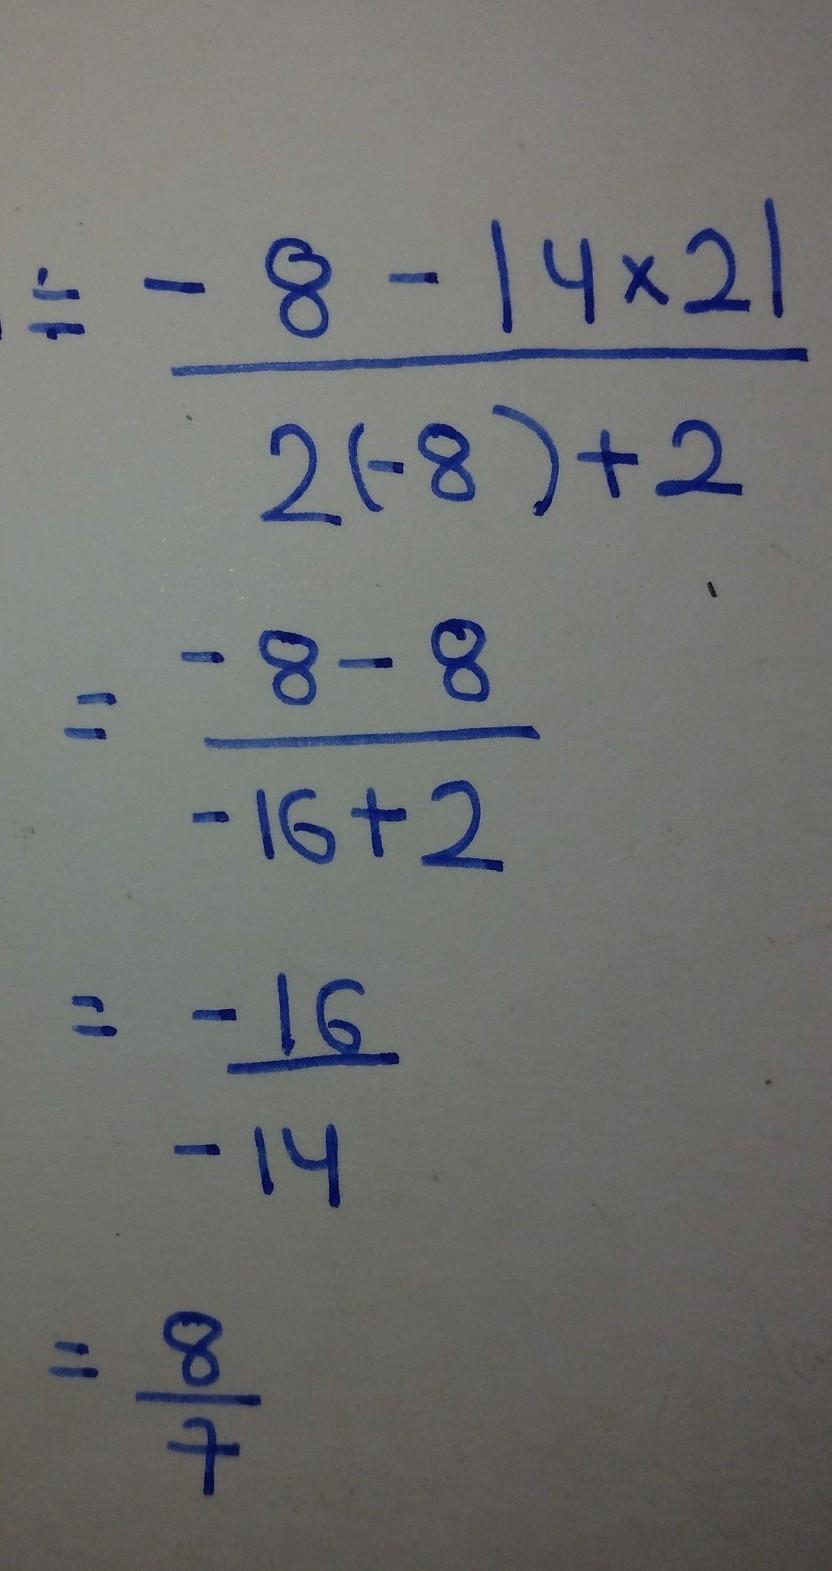 = - 8 - |4×2|
2(-8)+2
= -8-8
-16+2
= -16
-14
= 8
7